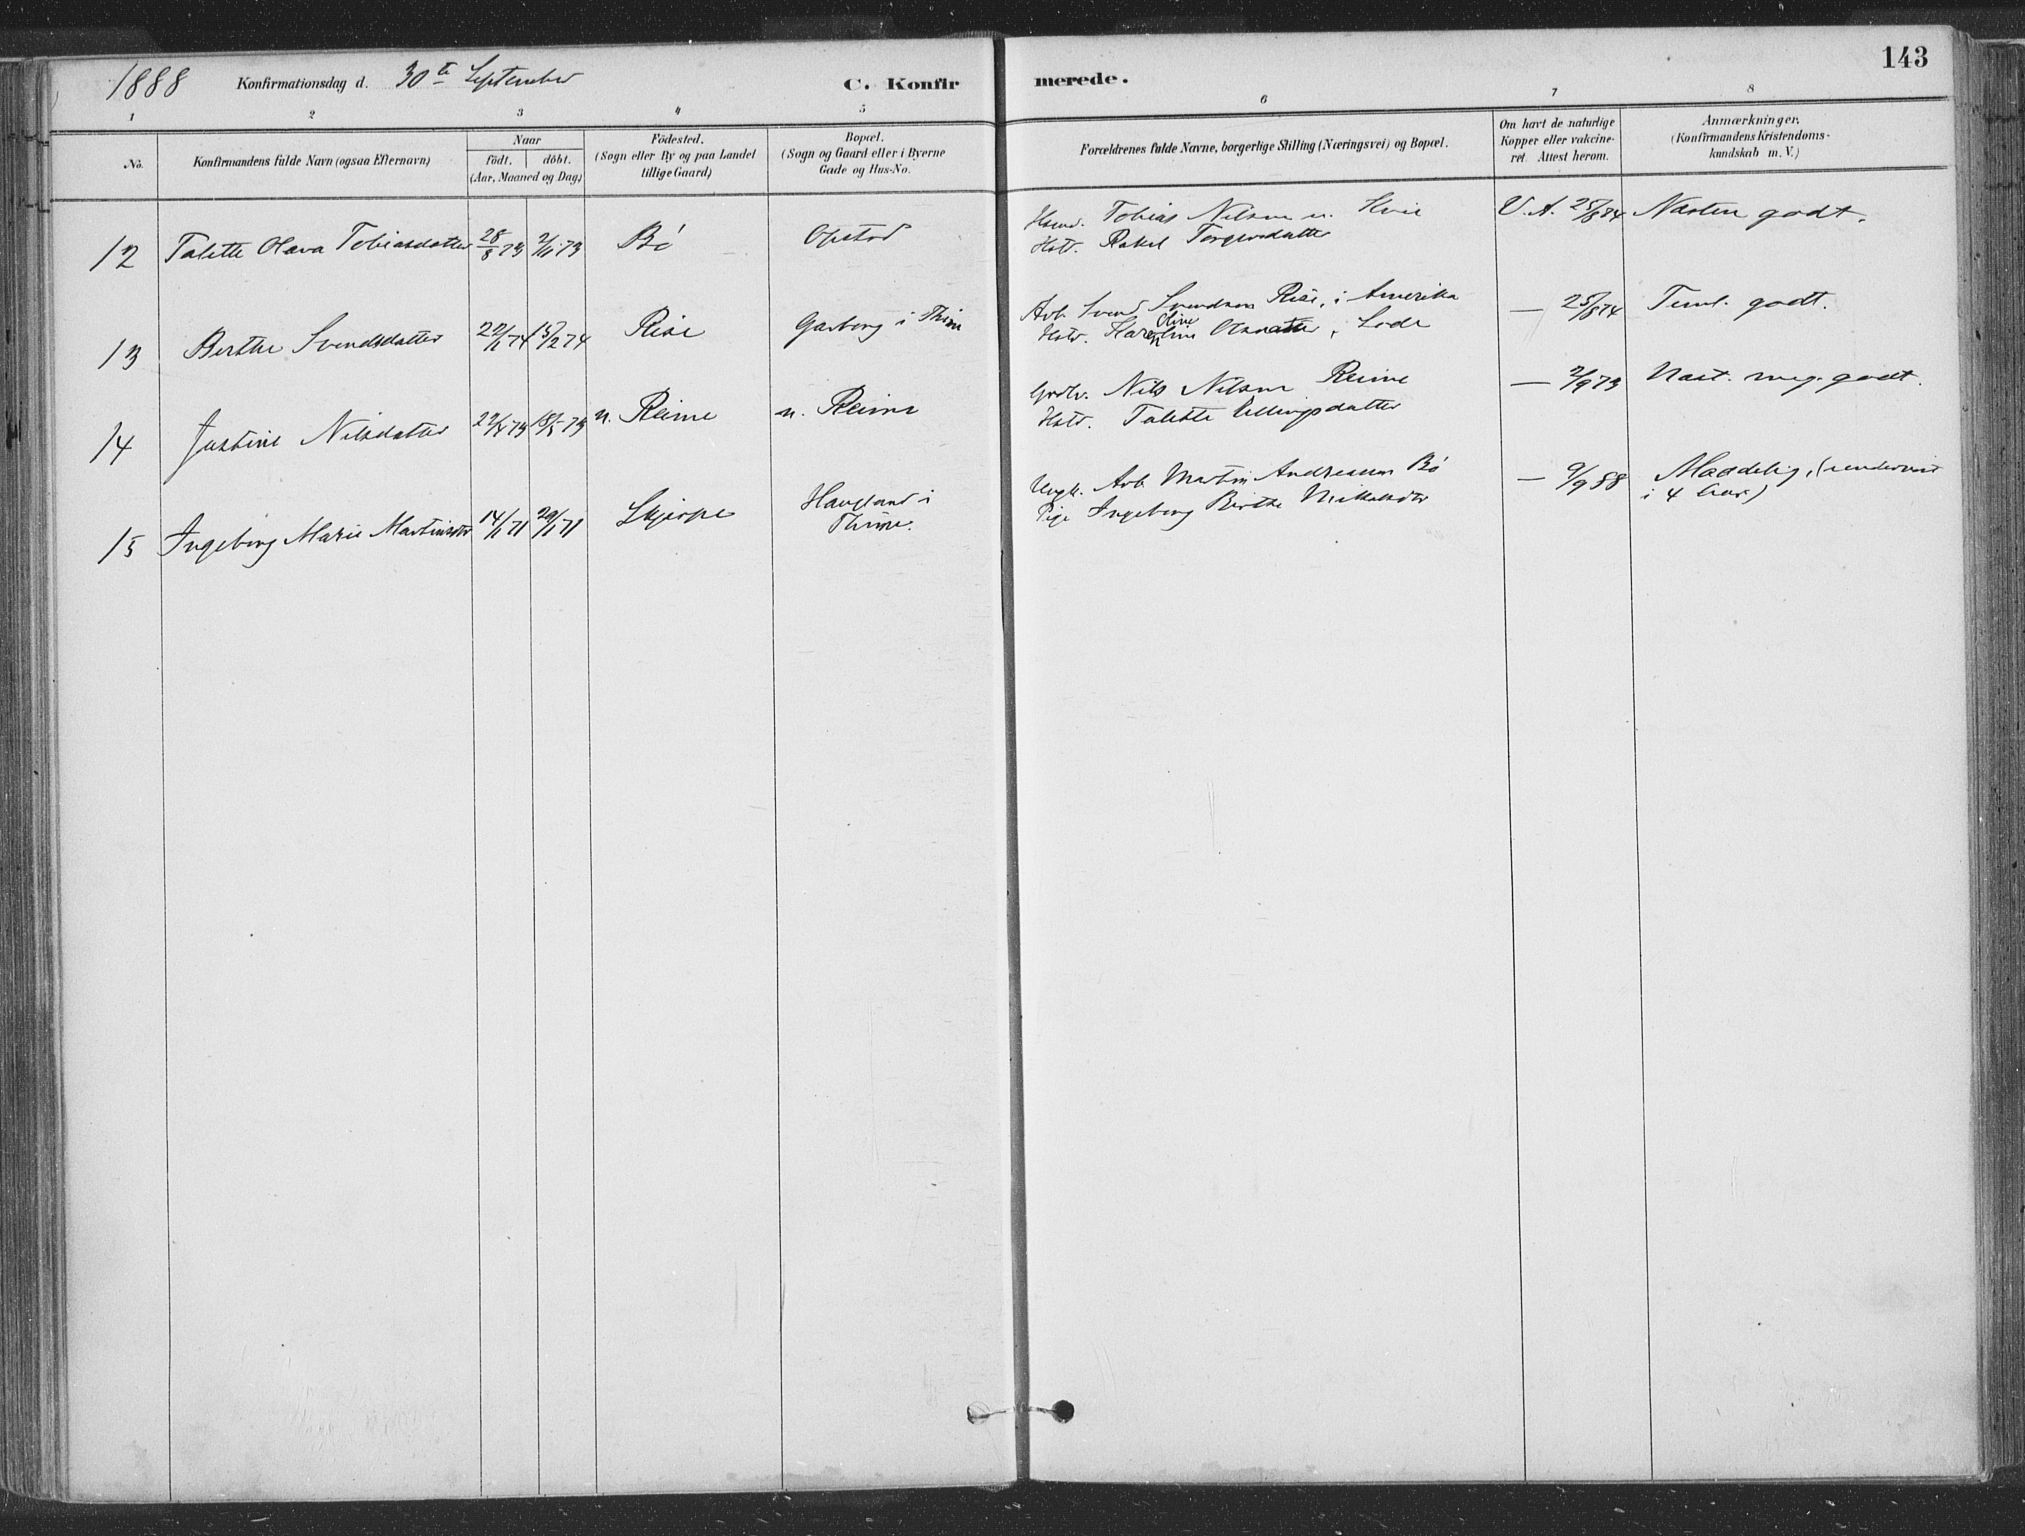 1888 Konfirmationsdag d. 30te September C. Konfirmerede. 143
1 2 3 4 5 6 7 8
No. Konfirmandens fulde Navn (ogsaa Efternavn) Naar födt. döbt. (Aar, Maaned og Dag) Födested. (Sogn eller By og paa Landet tillige Gaard) Bopæl. (Sogn og Gaard eller i Byerne Gade og Hus-No. Forældrenes fulde Navne, borgerlige Stilling (Næringsvei) og Bopæl. Om havt de naturlige Kopper eller vakcineret. Attest herom. Anmærkninger. (Konfirmandens Kristendomskundskab m. V.)
12 Talette Olava Tobiasdatter 28/8 73 2/11 73 Bö Opstad Tobias Nilsen n. Hvie V. A. 25/8 74 Næsten godt.
Hstr. Rakel Torgersdatter
13 Berthe Svendsdatter 22/1 74 15/2 74 Rise Garborg i Thime Arb. Svend Svendsen Risе, i Amerika — 25/8 74 Teml. godt.
Hstr. Karen Oline Olsdatter, Lode
14 Justine Nilsdatter 18/5 73 n. Reime n. Reime Grdbr. Nils Nilsen Reime — 2/9 73 Næst. meg. godt.
Hstr. Talette Ellingsdatter
15 Ingeborg Marie Martinsdtr 14/1 71 29/1 71 Skjerpe Haugland i Thime. Ungk. Arb. Martin Andreasen Bö — 9/9 88 Maadelig, (undervist i 4 Aar)
Pige Ingeborg Berthe Mikkelsdtr